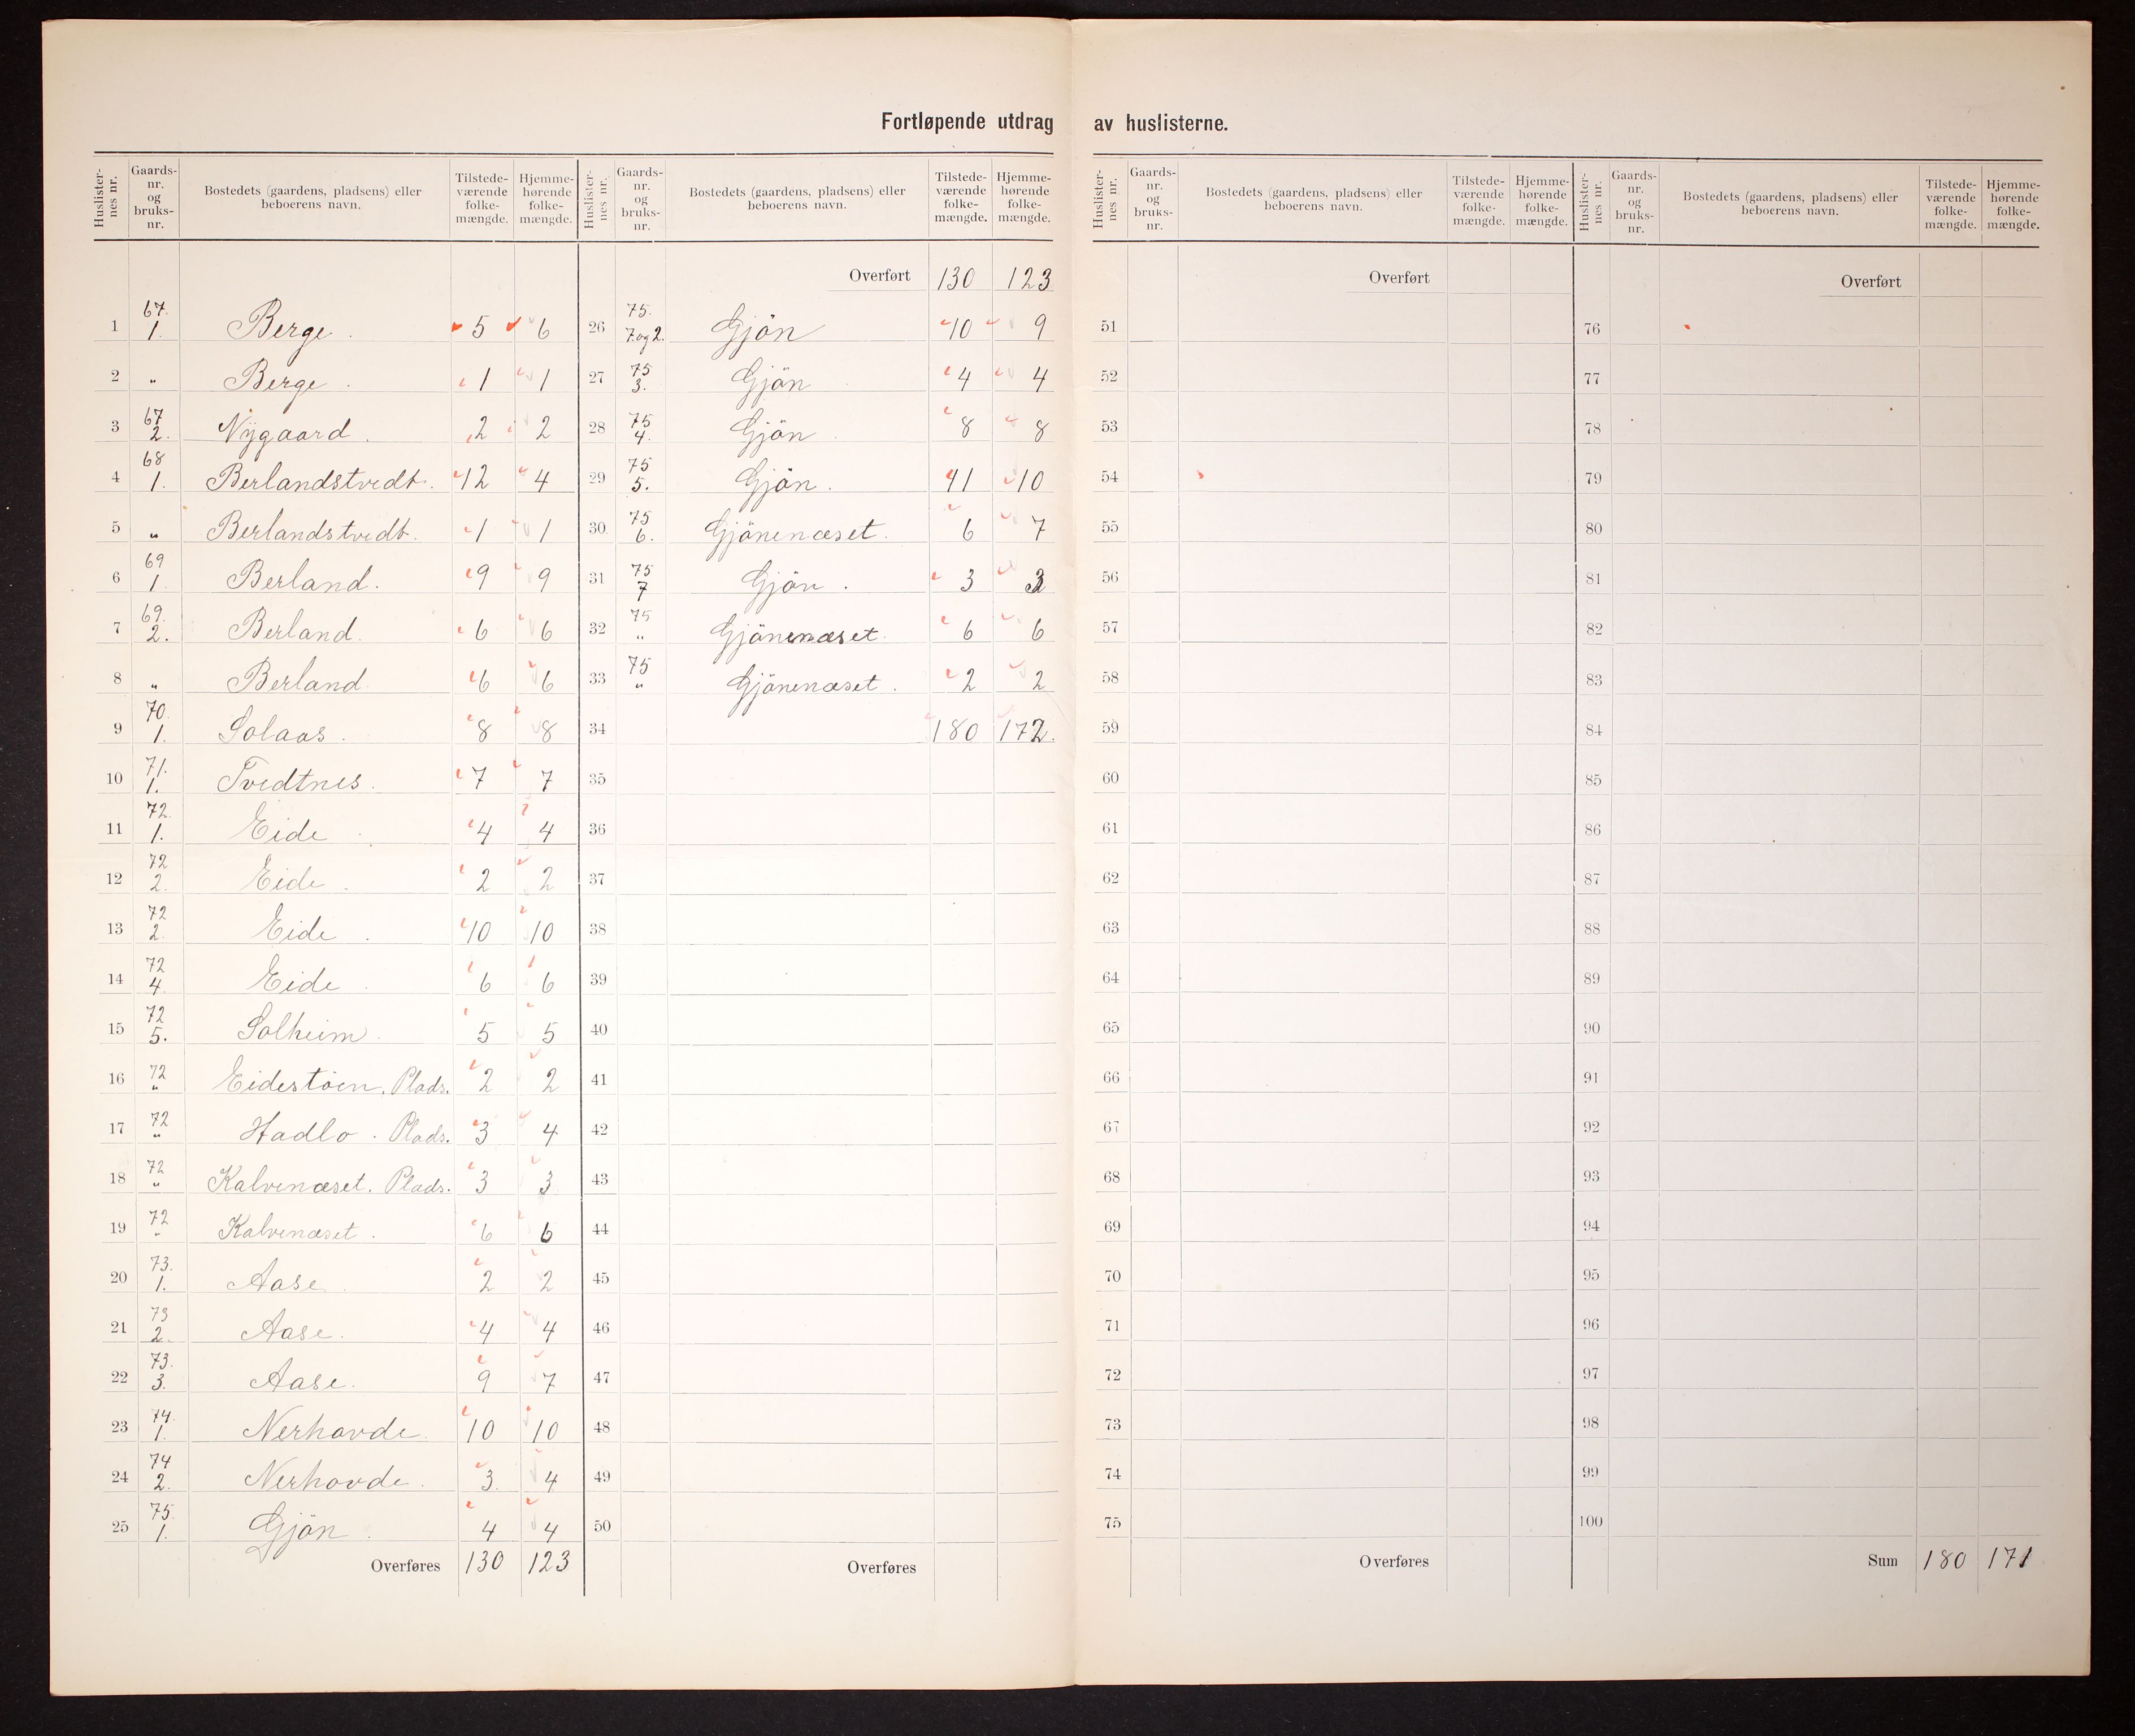 Fortløpende utdrag av huslisterne.
Huslister-nes nr. | Gaards-nr. og bruks-nr. | Bostedets (gaardens, pladsens) eller beboerens navn. | Tilstede-værende folke-mængde. | Hjemme-hørende folke-mængde.
1 67. 1. Berge. 5 6
2 „ Berge. 1 1
3 67 2. Nygaard. 2 2
4 68 1. Berlandstvedt. 12 4
5 „ Berlandstvedt. 1 1
6 69 1. Berland. 9 9
7 69. 2. Berland. 6 6
8 „ Berland. 6 6
9 70. 1. Solaas. 8 8
10 71. 1. Tvedtnes. 7 7
11 72. 1. Eide. 4 4
12 72 2. Eide. 2 2
13 72 2. Eide. 10 10
14 72 4. Eide. 6 6
15 72 5. Solheim. 5 5
16 72 „ Eidestöen. Plads. 2 2
17 72 „ Hadlo. Plads. 3 4
18 72 „ Kalvenæset. Plads. 3 3
19 72 „ Kalvenæset. 6 6
20 73. 1. Aase. 2 2
21 73 2. Aase. 4 4
22 73. 3. Aase. 9 7
23 74. 1. Nerhovde. 10 10
24 74 2. Nerhovde. 3. 4
25 75. 1. Gjön. 4 4
Overføres 130 123
Huslister-nes nr. | Gaards-nr. og bruks-nr. | Bostedets (gaardens, pladsens) eller beboerens navn. | Tilstede-værende folke-mængde. | Hjemme-hørende folke-mængde.
Overført 130 123
26 75. 7. og 2. Gjön 10 9
27 75 3. Gjön 4 4
28 75 4. Gjön. 8 8
29 75 5. Gjön. 11 10
30 75 6. Gjönenæset. 6 7
31 75 7 Gjön. 3
32 75 „ Gjönenæset. 6 6
33 75 „ Gjönenæset. 2 2
34 180 172.
35
36
37
38
39
40
41
42
43
44
45
46
47
48
49
50
Overføres
Huslister-nes nr. | Gaards-nr. og bruks-nr. | Bostedets (gaardens, pladsens) eller beboerens navn. | Tilstede-værende folke-mængde. | Hjemme-hørende folke-mængde.
Overført
51
52
53
54
55
56
57
58
59
60
61
62
63
64
65
66
67
68
69
70
71
72
73
74
75
Overføres
Huslister-nes nr. | Gaards-nr. og bruks-nr. | Bostedets (gaardens, pladsens) eller beboerens navn. | Tilstede-værende folke-mængde. | Hjemme-hørende folke-mængde.
Overført
76
77
78
79
80
81
82
83
84
85
86
87
88
89
90
91
92
93
94
95
96
97
98
99
100
Sum 180 171